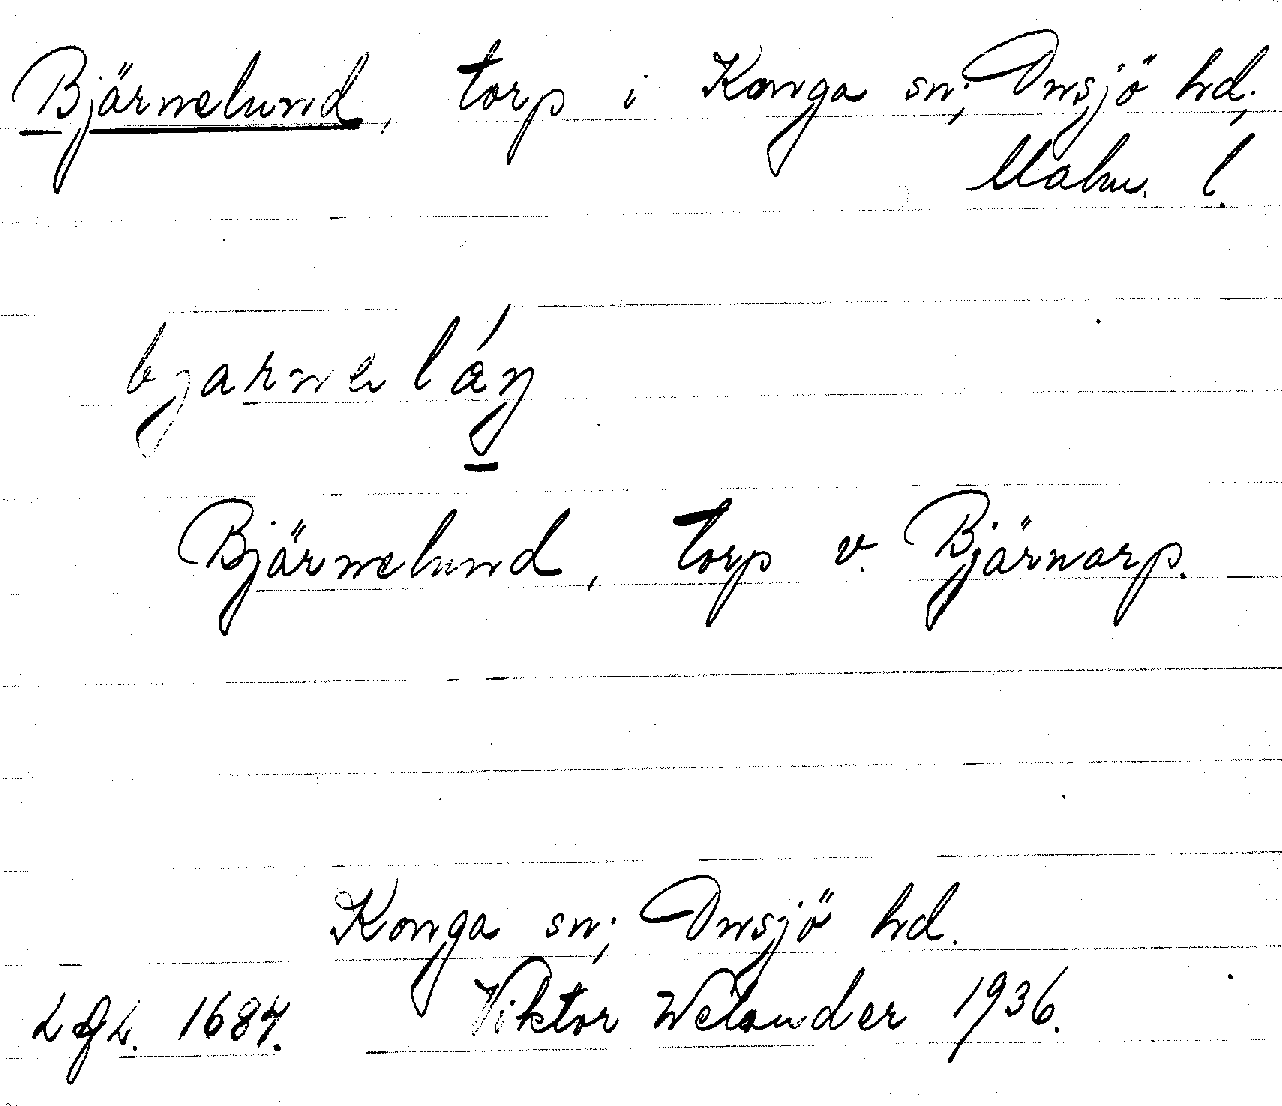 Bjärnelund, torp i Konga sn; Onsjö hd,
Malm. l.
bjarneláŋ
Bjärnelund, torp v. Bjärnarp.
Konga sn; Onsjö hd.
Viktor Welander 1936.